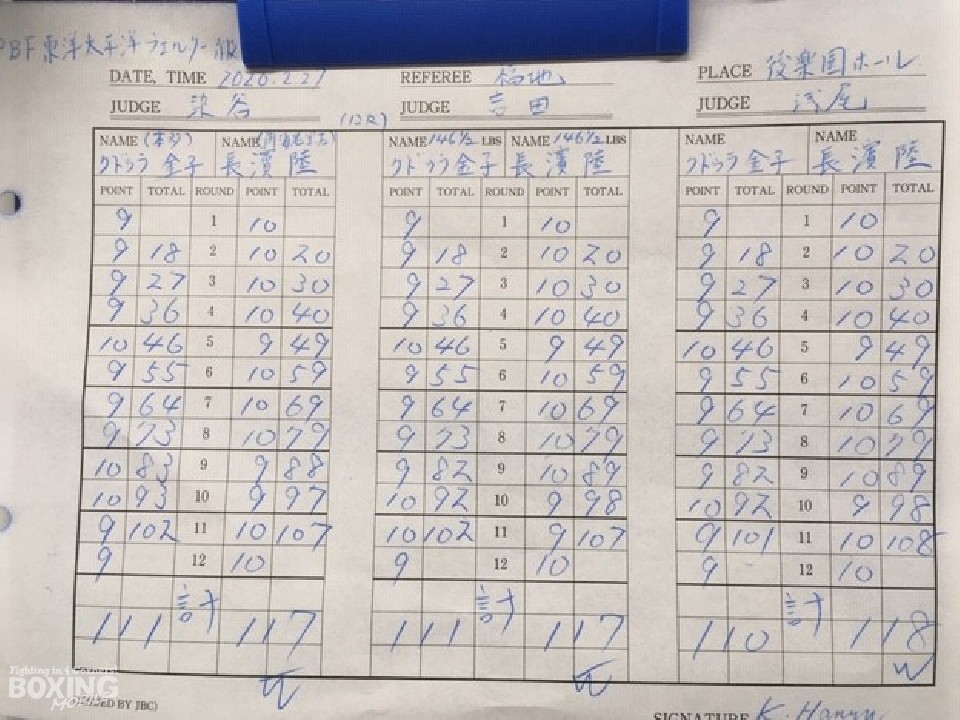 PBF東洋太平洋ウェルター級
DATE, TIME 2020.2.21 REFEREE 福地 PLACE 後楽園ホール
JUDGE 染谷 JUDGE 吉田 JUDGE 浅尾
(12R)
NAME NAME NAME 146 1/2 LBS NAME 146 1/2 LBS NAME NAME
クドゥラ金子 長濱陸 クドゥラ金子 長濱陸 クドゥラ金子 長濱陸
POINT TOTAL ROUND POINT TOTAL POINT TOTAL ROUND POINT TOTAL POINT TOTAL ROUND POINT TOTAL
9 1 10 9 1 10 9 1 10
9 18 2 10 20 9 18 2 10 20 9 18 2 10 20
9 27 3 10 30 9 27 3 10 30 9 27 3 10 30
9 36 4 10 40 9 36 4 10 40 9 36 4 10 40
10 46 5 9 49 10 46 5 9 49 10 46 5 9 49
9 55 6 10 59 9 55 6 10 59 9 55 6 10 59
9 64 7 10 69 9 64 7 10 69 9 64 7 10 69
9 73 8 10 79 9 73 8 10 79 9 73 8 10 79
10 83 9 9 88 9 82 9 10 89 9 82 9 10 89
10 93 10 9 97 10 92 10 9 98 10 92 10 9 98
9 102 11 10 107 10 102 11 9 107 9 101 11 10 108
9 12 10 9 12 10 9 12 10
111 計 117 111 計 117 110 計 118
W W W
Fighting in 4 corners!
BOXING
BY JBC)
SIGNATURE K. Hanyu